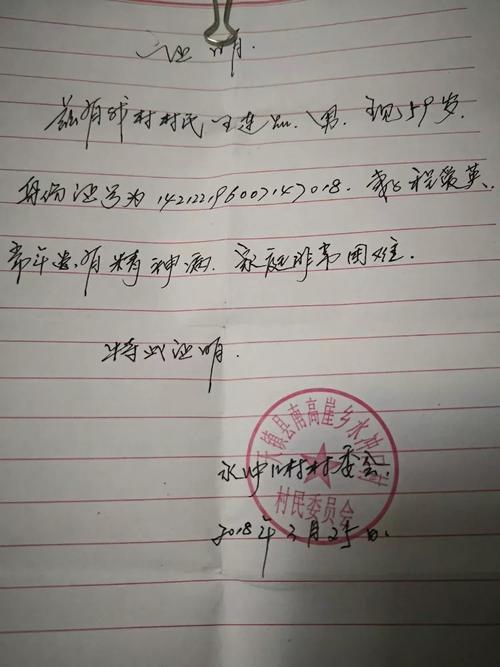 证明.
兹有我村村民王连,男.现59岁.
身份证号为142122196007147018.妻子程爱英.
常年患有精神病.家庭非常困难.
特此证明.
天镇县南高崖乡水冲口村
村民委员会
水冲口村村委会.
2018年3月25日.